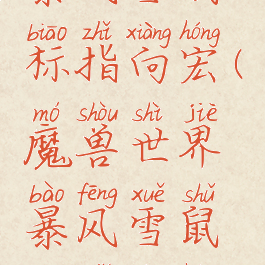 biāo zhǐ xiàng hóng
标指向宏(
mó shòu shì jiè
魔兽世界
bào fēng xuě shǔ
暴风雪鼠